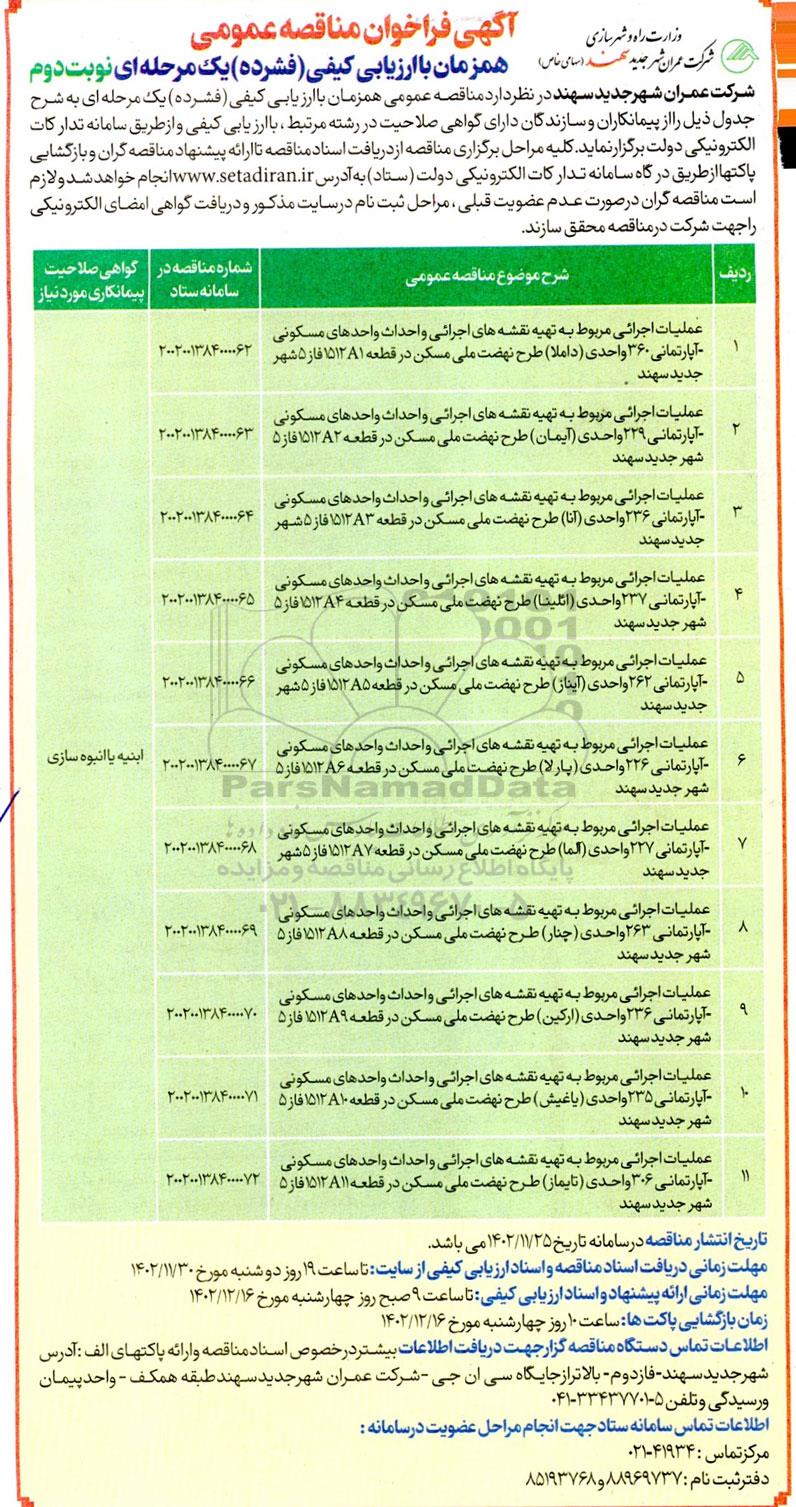 آگهی فراخوان مناقصه عمومی
همزمان با ارزیابی کیفی (فشرده) یک مرحله ای نوبت دوم
وزارت راه و شهرسازی
شرکت عمران شهر جدید سهند (سهامی خاص)
شرکت عمران شهر جدید سهند در نظر دارد مناقصه عمومی همزمان با ارزیابی کیفی (فشرده) یک مرحله ای به شرح
جدول ذیل را از پیمانکاران و سازندگان دارای گواهی صلاحیت در رشته مرتبط، با ارزیابی کیفی و از طریق سامانه تدارکات
الکترونیکی دولت برگزار نماید. کلیه مراحل برگزاری مناقصه از دریافت اسناد مناقصه تا ارائه پیشنهاد مناقصه گران و بازگشایی
پاکتها از طریق درگاه سامانه تدارکات الکترونیکی دولت (ستاد) به آدرس www.setadiran.ir انجام خواهد شد و لازم
است مناقصه گران در صورت عدم عضویت قبلی، مراحل ثبت نام در سایت مذکور و دریافت گواهی امضای الکترونیکی
را جهت شرکت در مناقصه محقق سازند.
ردیف
شرح موضوع مناقصه عمومی
شماره مناقصه در
سامانه ستاد
گواهی صلاحیت
پیمانکاری مورد نیاز
۱
عملیات اجرائی مربوط به تهیه نقشه های اجرائی و احداث واحدهای مسکونی
-آپارتمانی ۳۶۰ واحدی (داملا) طرح نهضت ملی مسکن در قطعه ۱۵۱۲A۱ فاز ۵ شهر
جدید سهند
۲۰۰۲۰۰۱۳۸۴۰۰۰۰۶۲
۲
عملیات اجرائی مربوط به تهیه نقشه های اجرائی و احداث واحدهای مسکونی
-آپارتمانی ۲۲۹ واحدی (آیمان) طرح نهضت ملی مسکن در قطعه ۱۵۱۲A۲ فاز ۵
شهر جدید سهند
۲۰۰۲۰۰۱۳۸۴۰۰۰۰۶۳
۳
عملیات اجرائی مربوط به تهیه نقشه های اجرائی و احداث واحدهای مسکونی
-آپارتمانی ۲۳۶ واحدی (آنا) طرح نهضت ملی مسکن در قطعه ۱۵۱۲A۳ فاز ۵ شهر
جدید سهند
۲۰۰۲۰۰۱۳۸۴۰۰۰۰۶۴
۴
عملیات اجرائی مربوط به تهیه نقشه های اجرائی و احداث واحدهای مسکونی
-آپارتمانی ۲۳۷ واحدی (ائلینا) طرح نهضت ملی مسکن در قطعه ۱۵۱۲A۴ فاز ۵
شهر جدید سهند
۲۰۰۲۰۰۱۳۸۴۰۰۰۰۶۵
۵
عملیات اجرائی مربوط به تهیه نقشه های اجرائی و احداث واحدهای مسکونی
-آپارتمانی ۲۶۲ واحدی (آیناز) طرح نهضت ملی مسکن در قطعه ۱۵۱۲A۵ فاز ۵ شهر
جدید سهند
۲۰۰۲۰۰۱۳۸۴۰۰۰۰۶۶
۶
عملیات اجرائی مربوط به تهیه نقشه های اجرائی و احداث واحدهای مسکونی
-آپارتمانی ۲۲۶ واحدی (پارلا) طرح نهضت ملی مسکن در قطعه ۱۵۱۲A۶ فاز ۵
شهر جدید سهند
۲۰۰۲۰۰۱۳۸۴۰۰۰۰۶۷
ابنیه یا انبوه سازی
۷
عملیات اجرائی مربوط به تهیه نقشه های اجرائی و احداث واحدهای مسکونی
-آپارتمانی ۲۲۷ واحدی (آلما) طرح نهضت ملی مسکن در قطعه ۱۵۱۲A۷ فاز ۵ شهر
جدید سهند
۲۰۰۲۰۰۱۳۸۴۰۰۰۰۶۸
۸
عملیات اجرائی مربوط به تهیه نقشه های اجرائی و احداث واحدهای مسکونی
-آپارتمانی ۲۶۳ واحدی (چنار) طرح نهضت ملی مسکن در قطعه ۱۵۱۲A۸ فاز ۵
شهر جدید سهند
۲۰۰۲۰۰۱۳۸۴۰۰۰۰۶۹
۹
عملیات اجرائی مربوط به تهیه نقشه های اجرائی و احداث واحدهای مسکونی
-آپارتمانی ۲۳۶ واحدی (ارکین) طرح نهضت ملی مسکن در قطعه ۱۵۱۲A۹ فاز ۵
شهر جدید سهند
۲۰۰۲۰۰۱۳۸۴۰۰۰۰۷۰
۱۰
عملیات اجرائی مربوط به تهیه نقشه های اجرائی و احداث واحدهای مسکونی
-آپارتمانی ۲۳۵ واحدی (یاغیش) طرح نهضت ملی مسکن در قطعه ۱۵۱۲A۱۰ فاز ۵
شهر جدید سهند
۲۰۰۲۰۰۱۳۸۴۰۰۰۰۷۱
۱۱
عملیات اجرائی مربوط به تهیه نقشه های اجرائی و احداث واحدهای مسکونی
-آپارتمانی ۳۰۶ واحدی (تایماز) طرح نهضت ملی مسکن در قطعه ۱۵۱۲A۱۱ فاز ۵
شهر جدید سهند
۲۰۰۲۰۰۱۳۸۴۰۰۰۰۷۲
ParsNamadData
پایگاه اطلاع رسانی مناقصه و مزایده
تاریخ انتشار مناقصه در سامانه تاریخ ۱۴۰۲/۱۱/۲۵ می باشد.
مهلت زمانی دریافت اسناد مناقصه و اسناد ارزیابی کیفی از سایت: تا ساعت ۱۹ روز دوشنبه مورخ ۱۴۰۲/۱۱/۳۰
مهلت زمانی ارائه پیشنهاد و اسناد ارزیابی کیفی: تا ساعت ۹ صبح روز چهارشنبه مورخ ۱۴۰۲/۱۲/۱۶
زمان بازگشایی پاکت ها: ساعت ۱۰ روز چهارشنبه مورخ ۱۴۰۲/۱۲/۱۶
اطلاعات تماس دستگاه مناقصه گزار جهت دریافت اطلاعات بیشتر در خصوص اسناد مناقصه و ارائه پاکتهای الف: آدرس
شهر جدید سهند-فاز دوم- بالاتر از جایگاه سی ان جی -شرکت عمران شهر جدید سهند طبقه همکف - واحد پیمان
و رسیدگی و تلفن ۵-۳۳۴۳۷۷۰۱-۰۴۱
اطلاعات تماس سامانه ستاد جهت انجام مراحل عضویت در سامانه:
مرکز تماس: ۴۱۹۳۴-۰۲۱
دفتر ثبت نام: ۸۸۹۶۹۷۳۷ و ۸۵۱۹۳۷۶۸